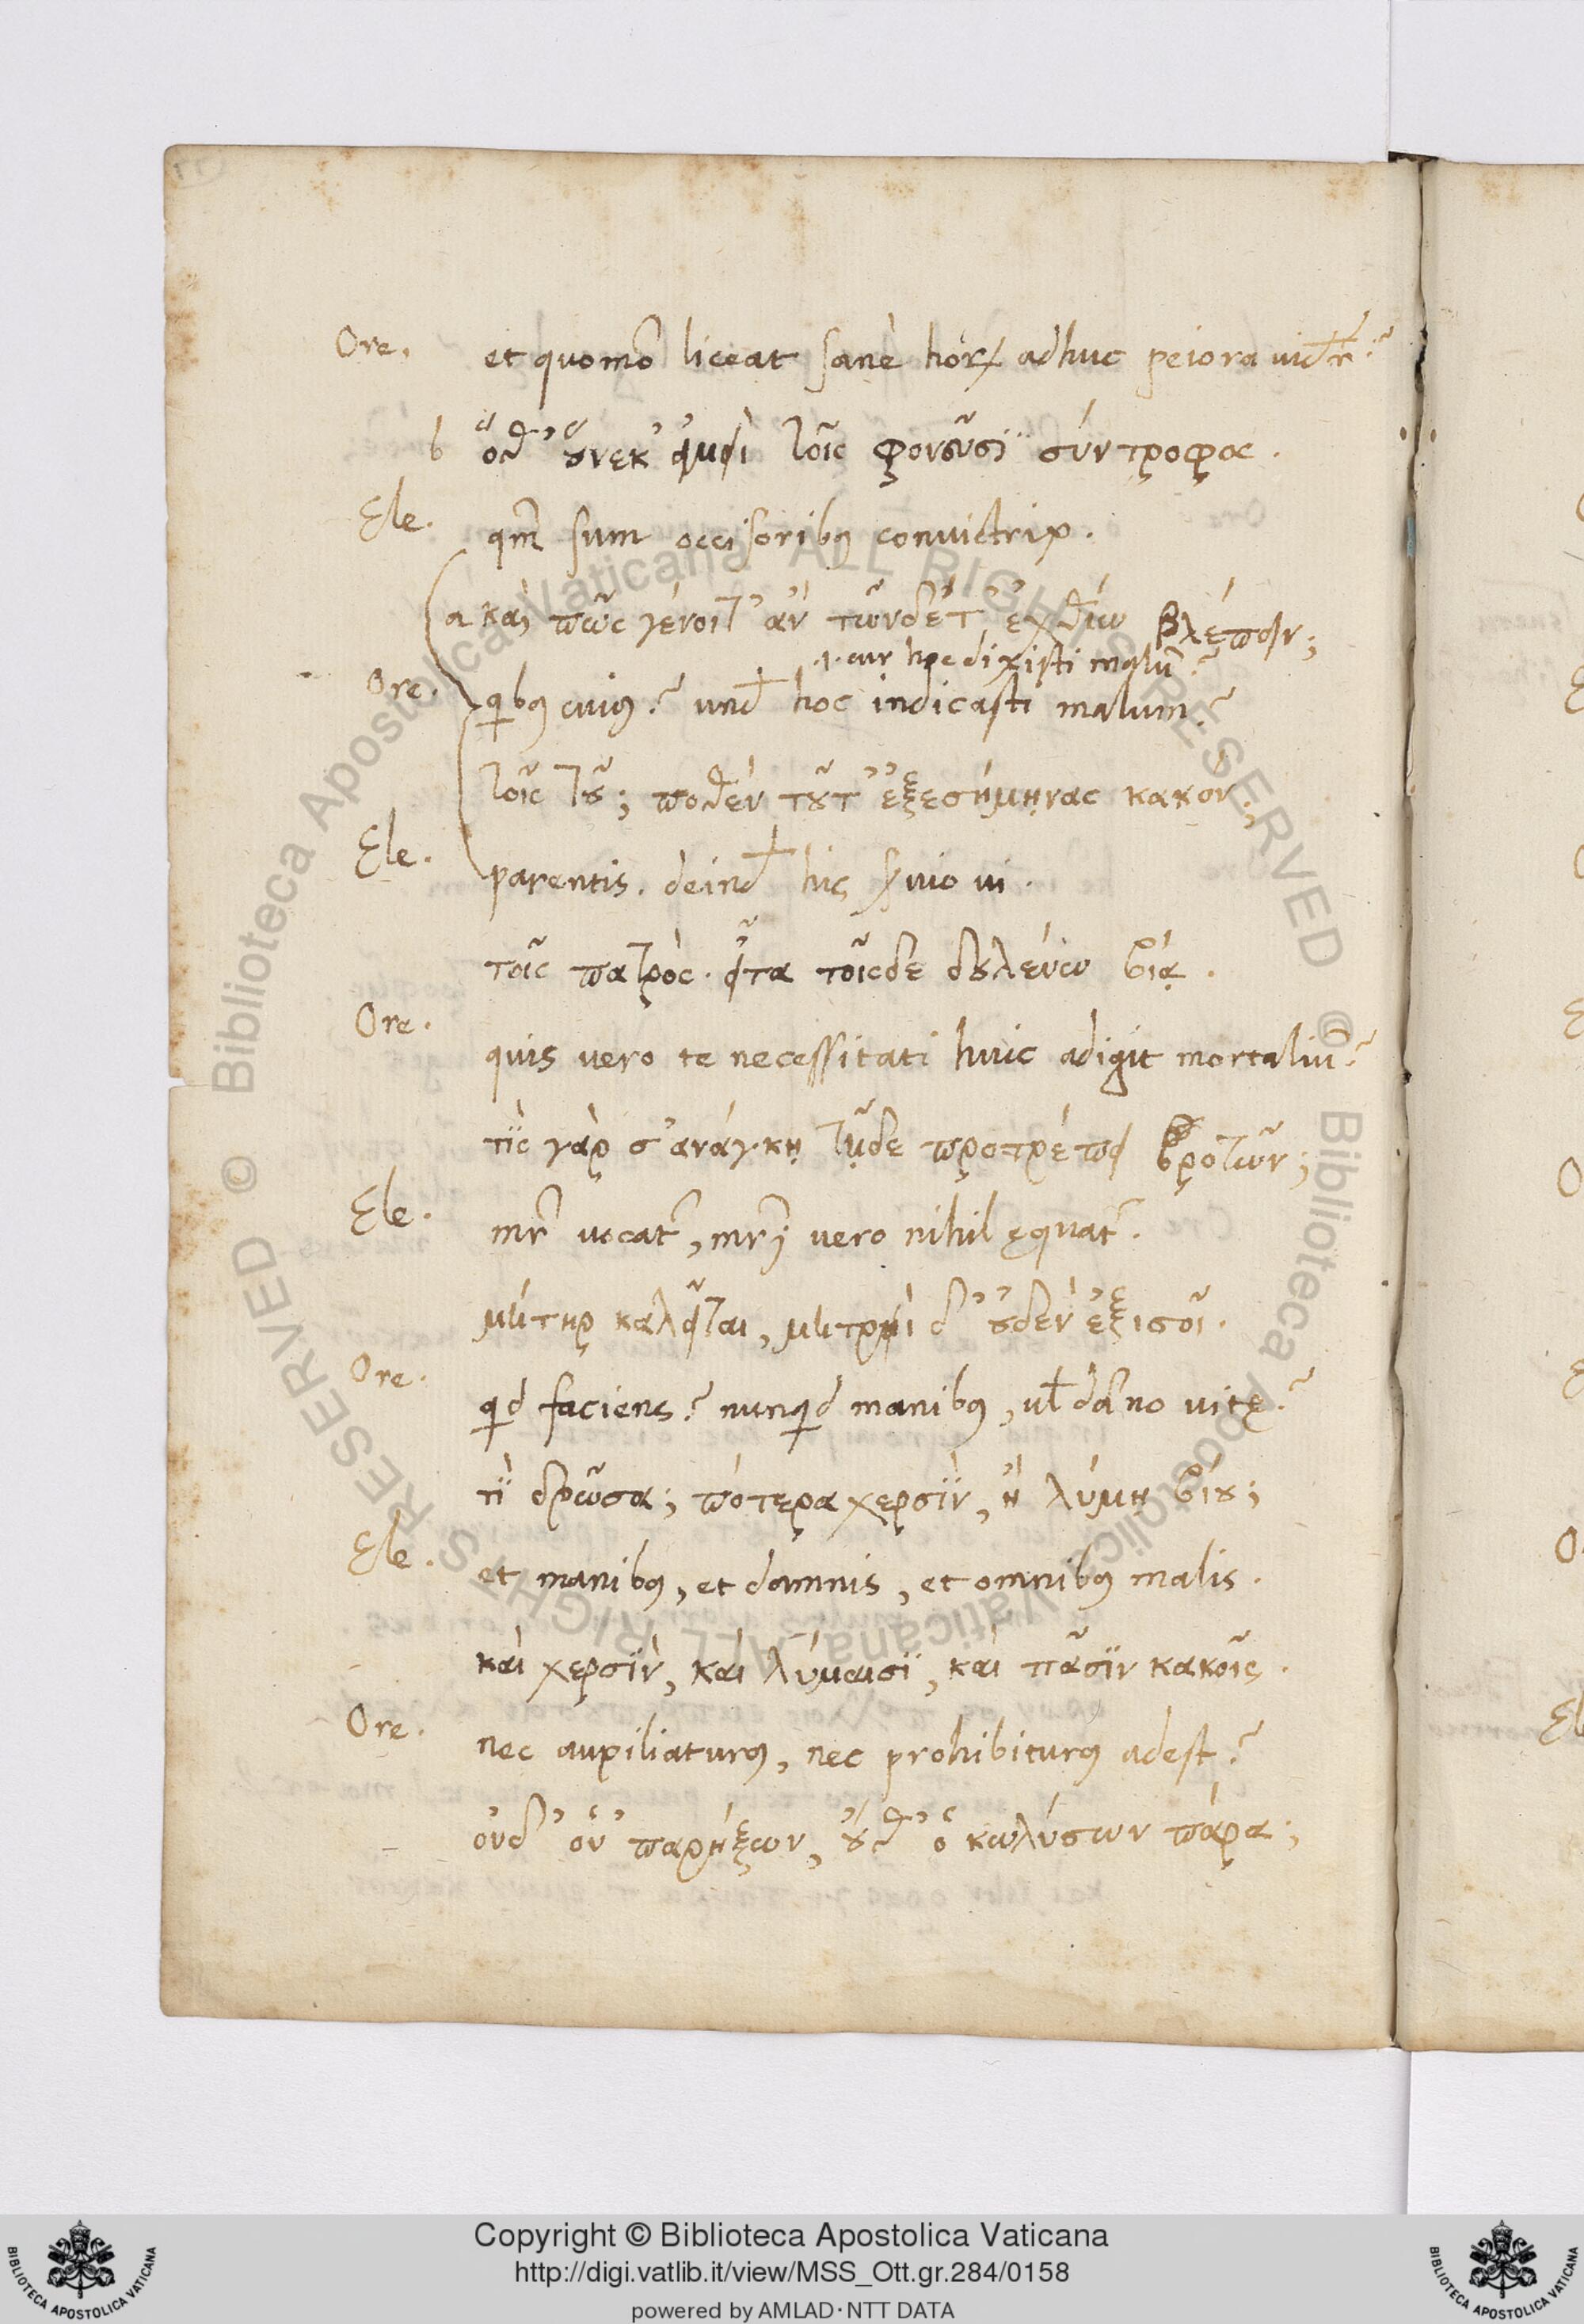 Ore. et quomo͂ liceat sane horꝝ adhuc peiora uider̃?
b ὅθ' οὕνεκ' εἰμὶ τοῖς φονεῦσι σύντροφος.
Ele. qm̃ sum occisoribꝰ convictrix.
a καὶ πῶς γένοιτ' ἂν τῶνδέ τ' ἐχθίω βλέπειν;
.i. cur hoc dixisti malũ?
Ore. qibꝰ cuiꝰ? und̵ hoc indicasti malum?
τοῖς τοῦ; ποθὲν τοῦτ' ἐξεσήμηνας κακόν;
Ele. parentis. deind̵ his seruio ui.
τοῖς πατρὸς. εἶτα τοῖσδε δουλεύω βίᾳ.
Ore. quis uero te necessitati huic adigit mortaliũ?
τὶς γὰρ σ' ἀνάγκῃ τῇδε προτρέπει βροτῶν;
Ele. mr̃ uocat͂, mr̃j uero nihil ęquat͂.
μήτηρ καλεῖται, μητρὶ δ' οὐδὲν ἐξισοῖ.
Ore. qid faciens? nunqid manibꝰ, ul̵ dãno uitę?
τὶ δρῶσα; πότερα χερσὶν, ἢ λύμῃ βίου;
Ele. et manibꝰ, et damnis, et omnibꝰ malis.
καὶ χερσὶν, καὶ λύμαισι, καὶ πᾶσιν κακοῖς.
Ore. nec auxiliaturꝰ, nec prohibiturꝰ adest?
οὐδ' οὑ' παρήξων, οὔθ' ὁ κωλύσων πάρα;
Copyright © Biblioteca Apostolica Vaticana
http://digi.vatlib.it/view/MSS_Ott.gr.284/0158
powered by AMLAD·NTT DATA
BIBLIOTECA APOSTOLICA VATICANA
BIBLIOTECA APOSTOLICA VATICANA
© Biblioteca Apostolica Vaticana ALL RIGHTS RESERVED
© Biblioteca Apostolica Vaticana ALL RIGHTS RESERVED